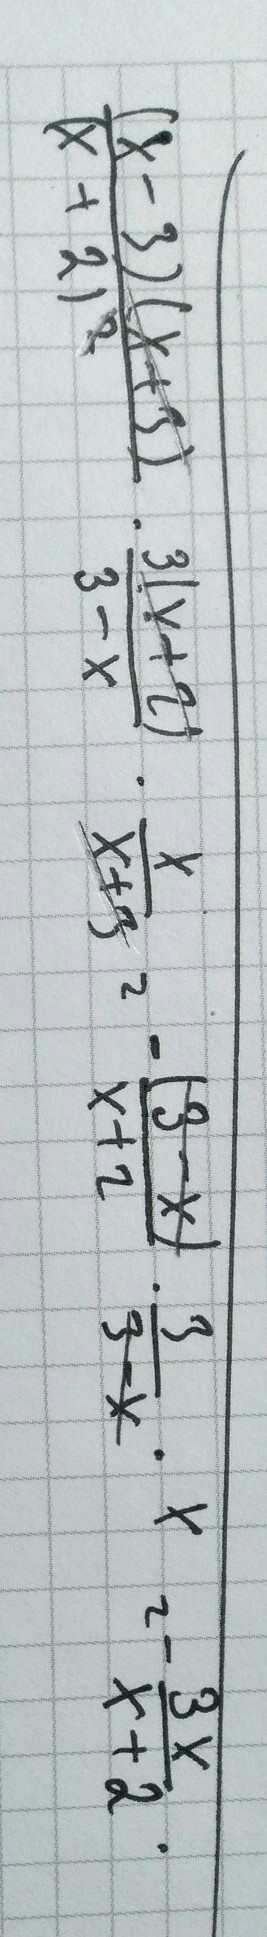 (x - 3)(x + 3) / (x + 2)² · 3(x + 2) / (3 - x) · x / (x + 3) = -(3 - x) / (x + 2) · 3 / (3 - x) · x = - 3x / (x + 2) .